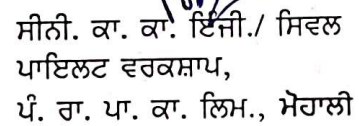 ਸੀਨੀ. ਕਾ. ਕਾ. ਇੰਜੀ./ ਸਿਵਲ
ਪਾਇਲਟ ਵਰਕਸ਼ਾਪ,
ਪੰ. ਰਾ. ਪਾ. ਕਾ. ਲਿਮ., ਮੋਹਾਲੀ